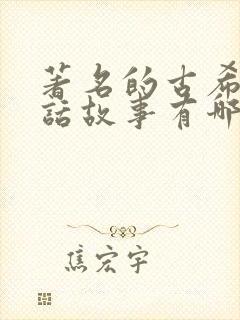 著名的古希
話故事有哪
焦宏宇